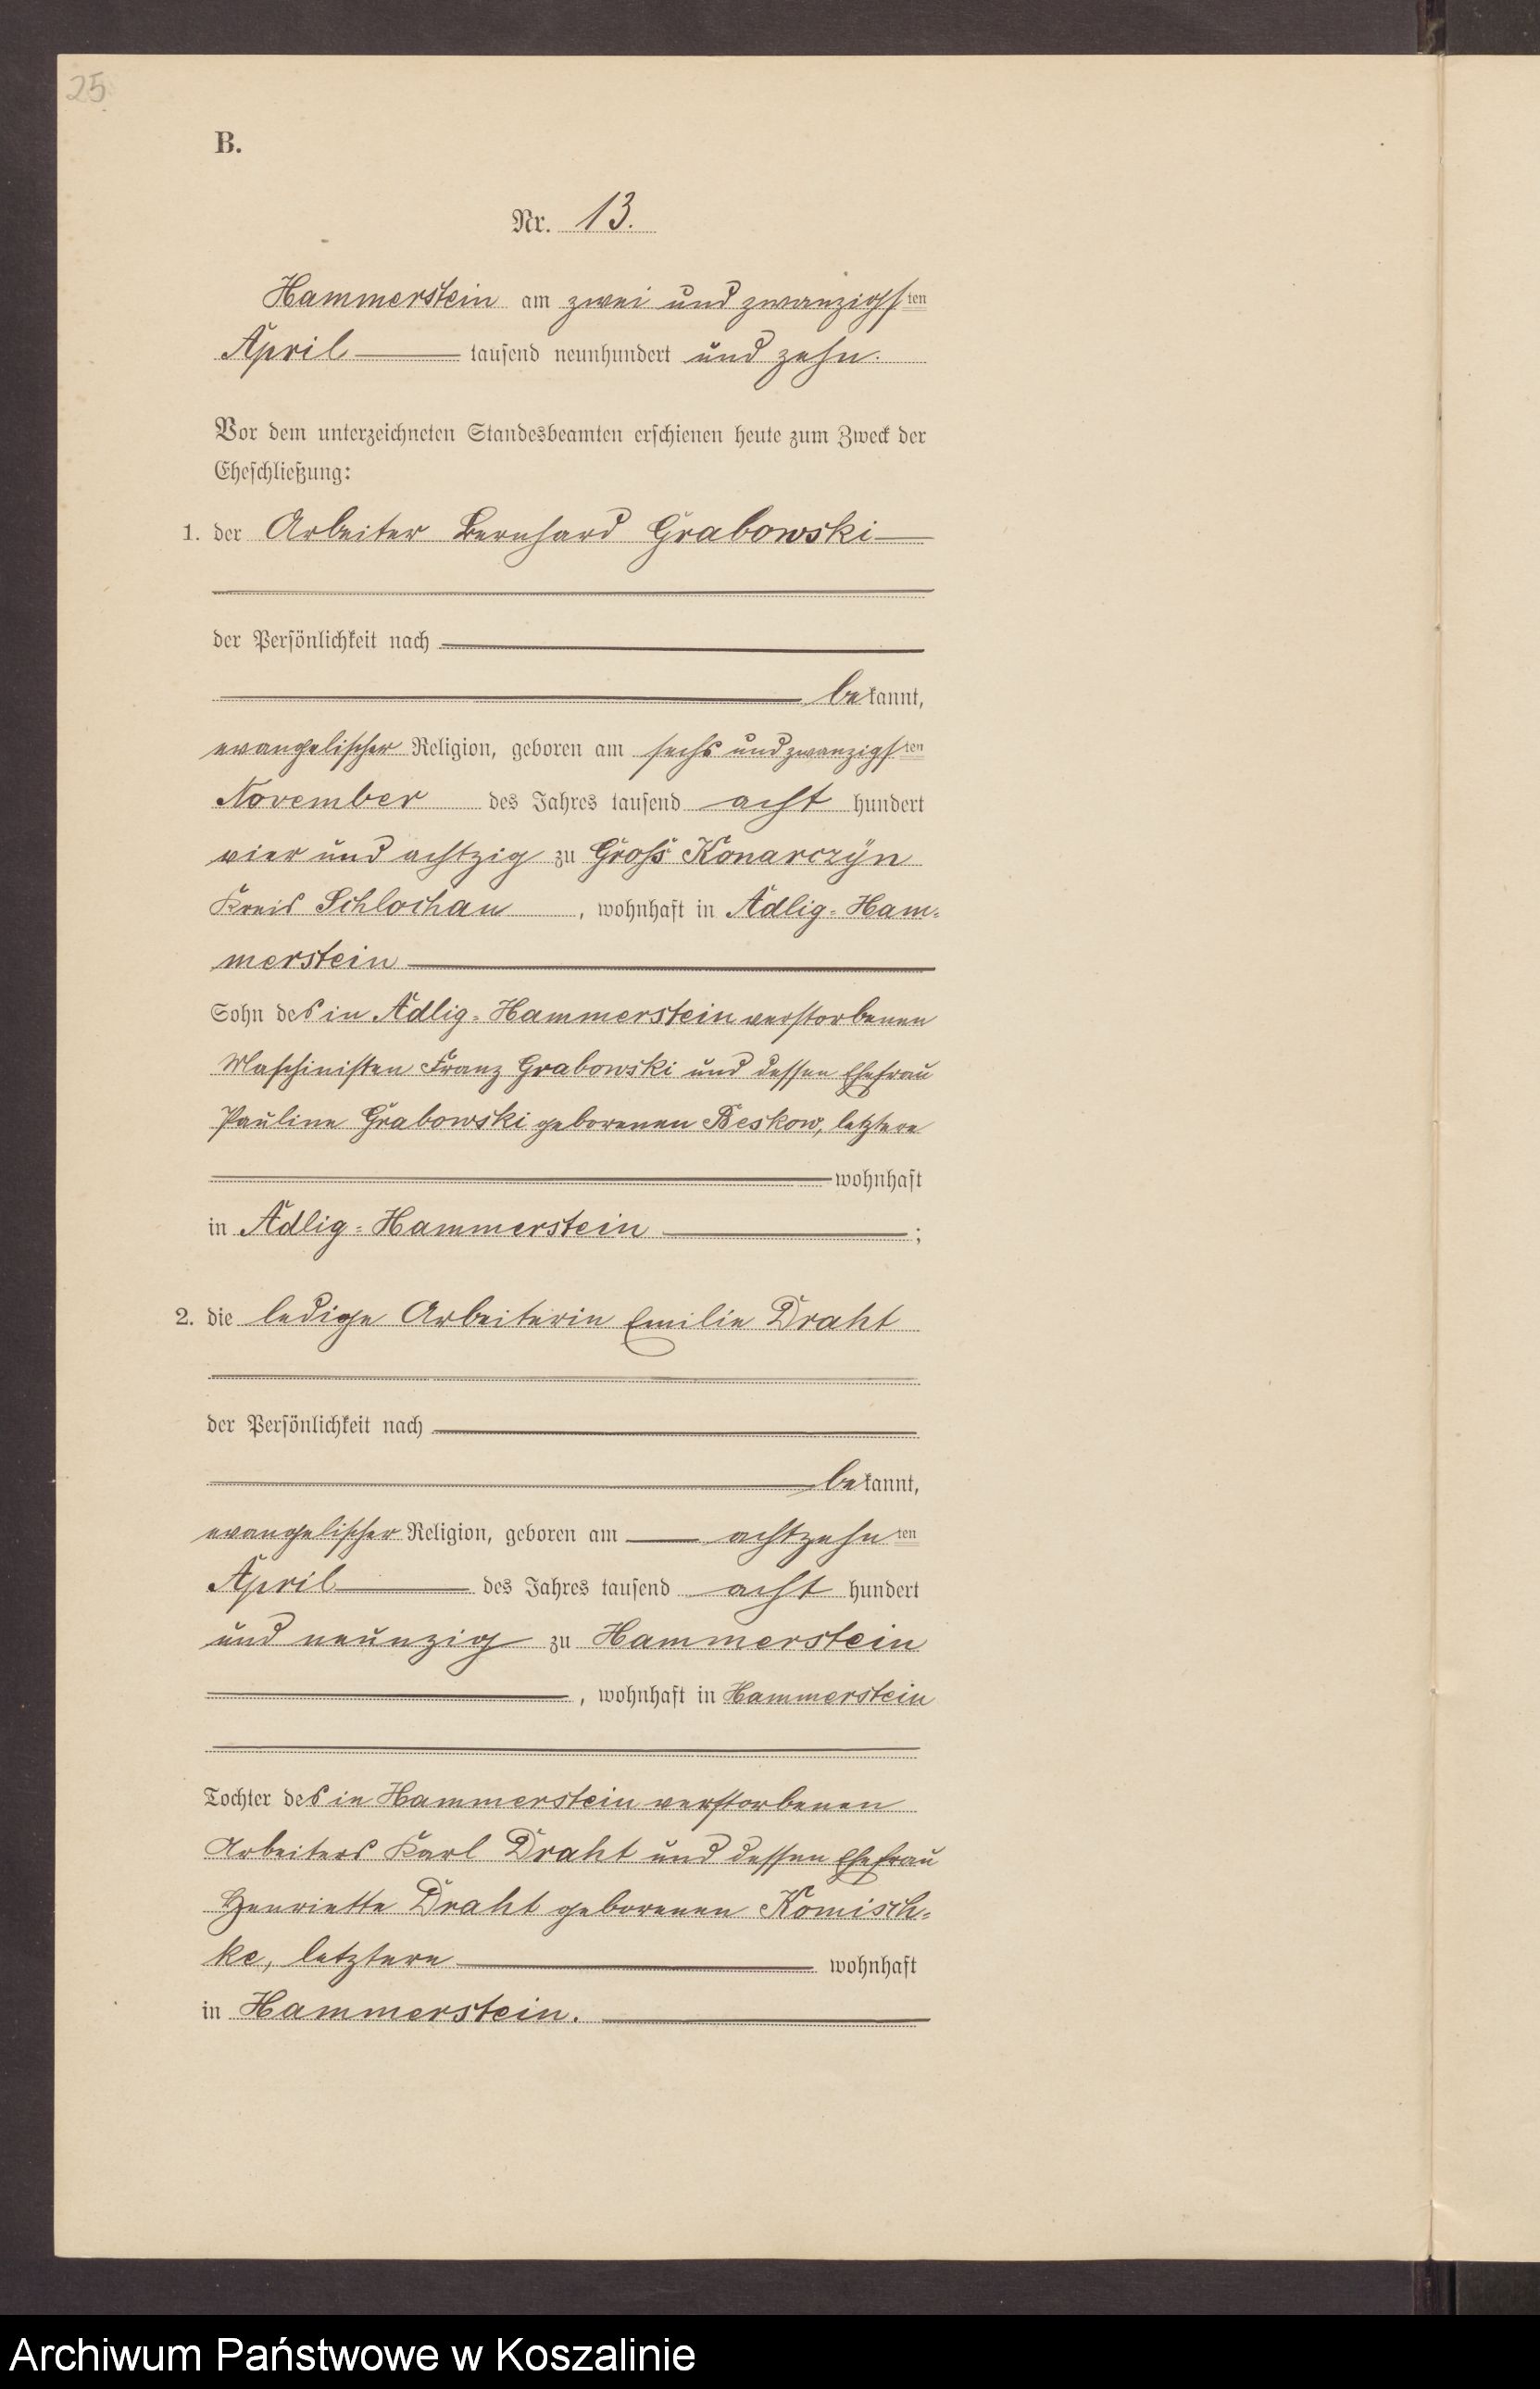 25
B.
Nr. 13.
Hammerstein am zwei und zwanzigsten
April tausend neunhundert und zehn.
Vor dem unterzeichneten Standesbeamten erschienen heute zum Zweck der
Eheschließung:
1. der Arbeiter Bernhard Grabowski
der Persönlichkeit nach
bekannt,
evangelischer Religion, geboren am sechs und zwanzigsten
November des Jahres tausend acht hundert
vier und achtzig zu Groß Konarczyn
Kreis Schlochau, wohnhaft in Adlig-Ham-
merstein
Sohn des in Adlig-Hammerstein verstorbenen
Maschinisten Franz Grabowski und dessen Ehefrau
Pauline Grabowski geborenen Beskow, letztere
wohnhaft
in Adlig-Hammerstein;
2. die ledige Arbeiterin Emilie Draht
der Persönlichkeit nach
bekannt,
evangelischer Religion, geboren am achtzehnten
April des Jahres tausend acht hundert
und neunzig zu Hammerstein
, wohnhaft in Hammerstein
Tochter des in Hammerstein verstorbenen
Arbeiters Karl Draht und dessen Ehefrau
Henriette Draht geborenen Komisch-
ke, letztere wohnhaft
in Hammerstein.
Archiwum Państwowe w Koszalinie